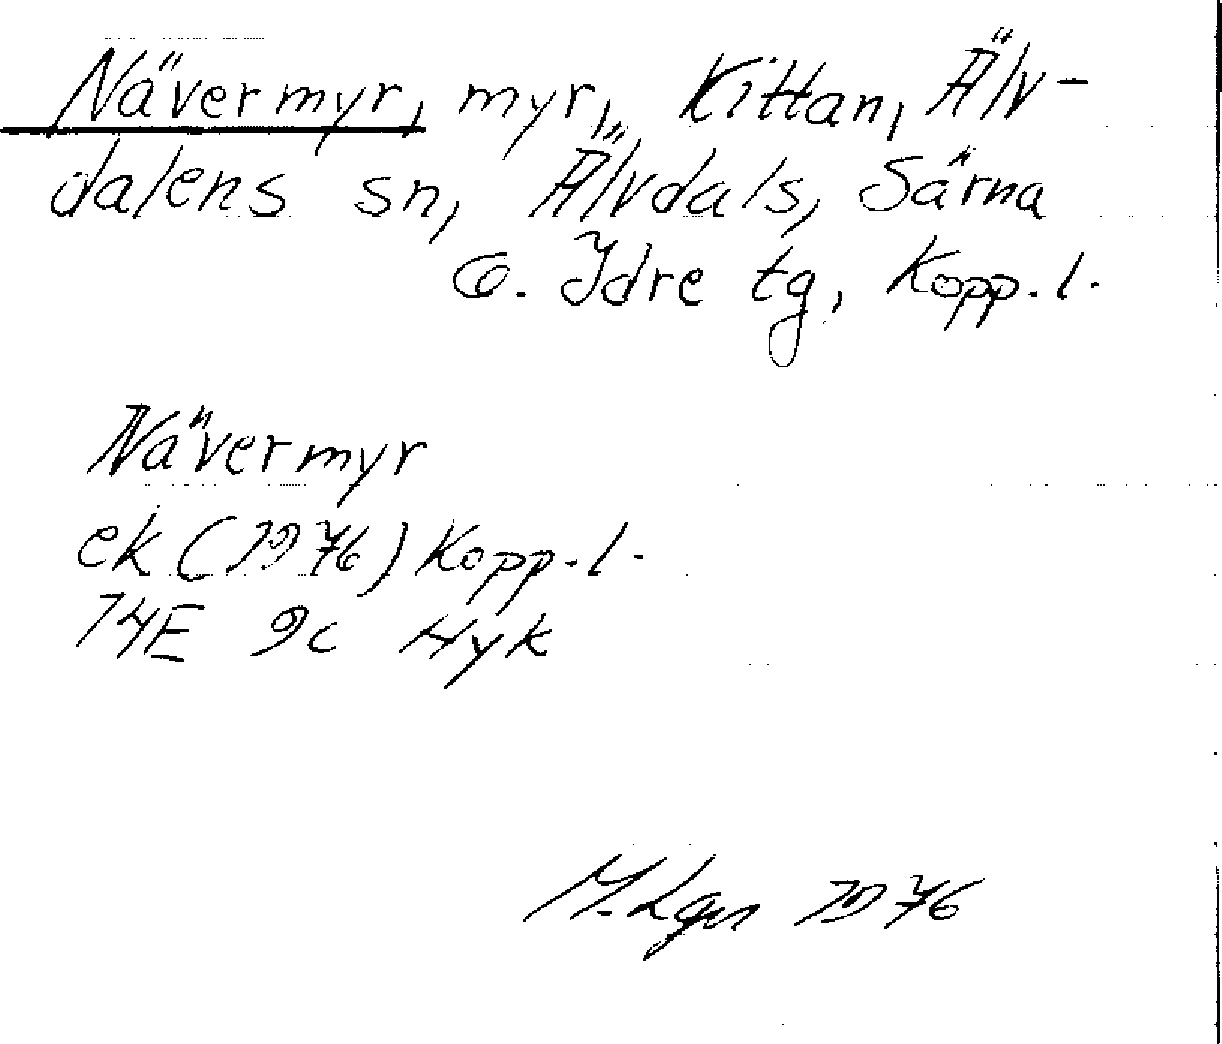 Nävermyr, myr, Kittan, Älv-
dalens sn, Älvdals, Särna
o. Idre tg, Kopp. l.
Nävermyr
ek (1976) Kopp. l.
14E 9c Hyk
M. Lgn 1976